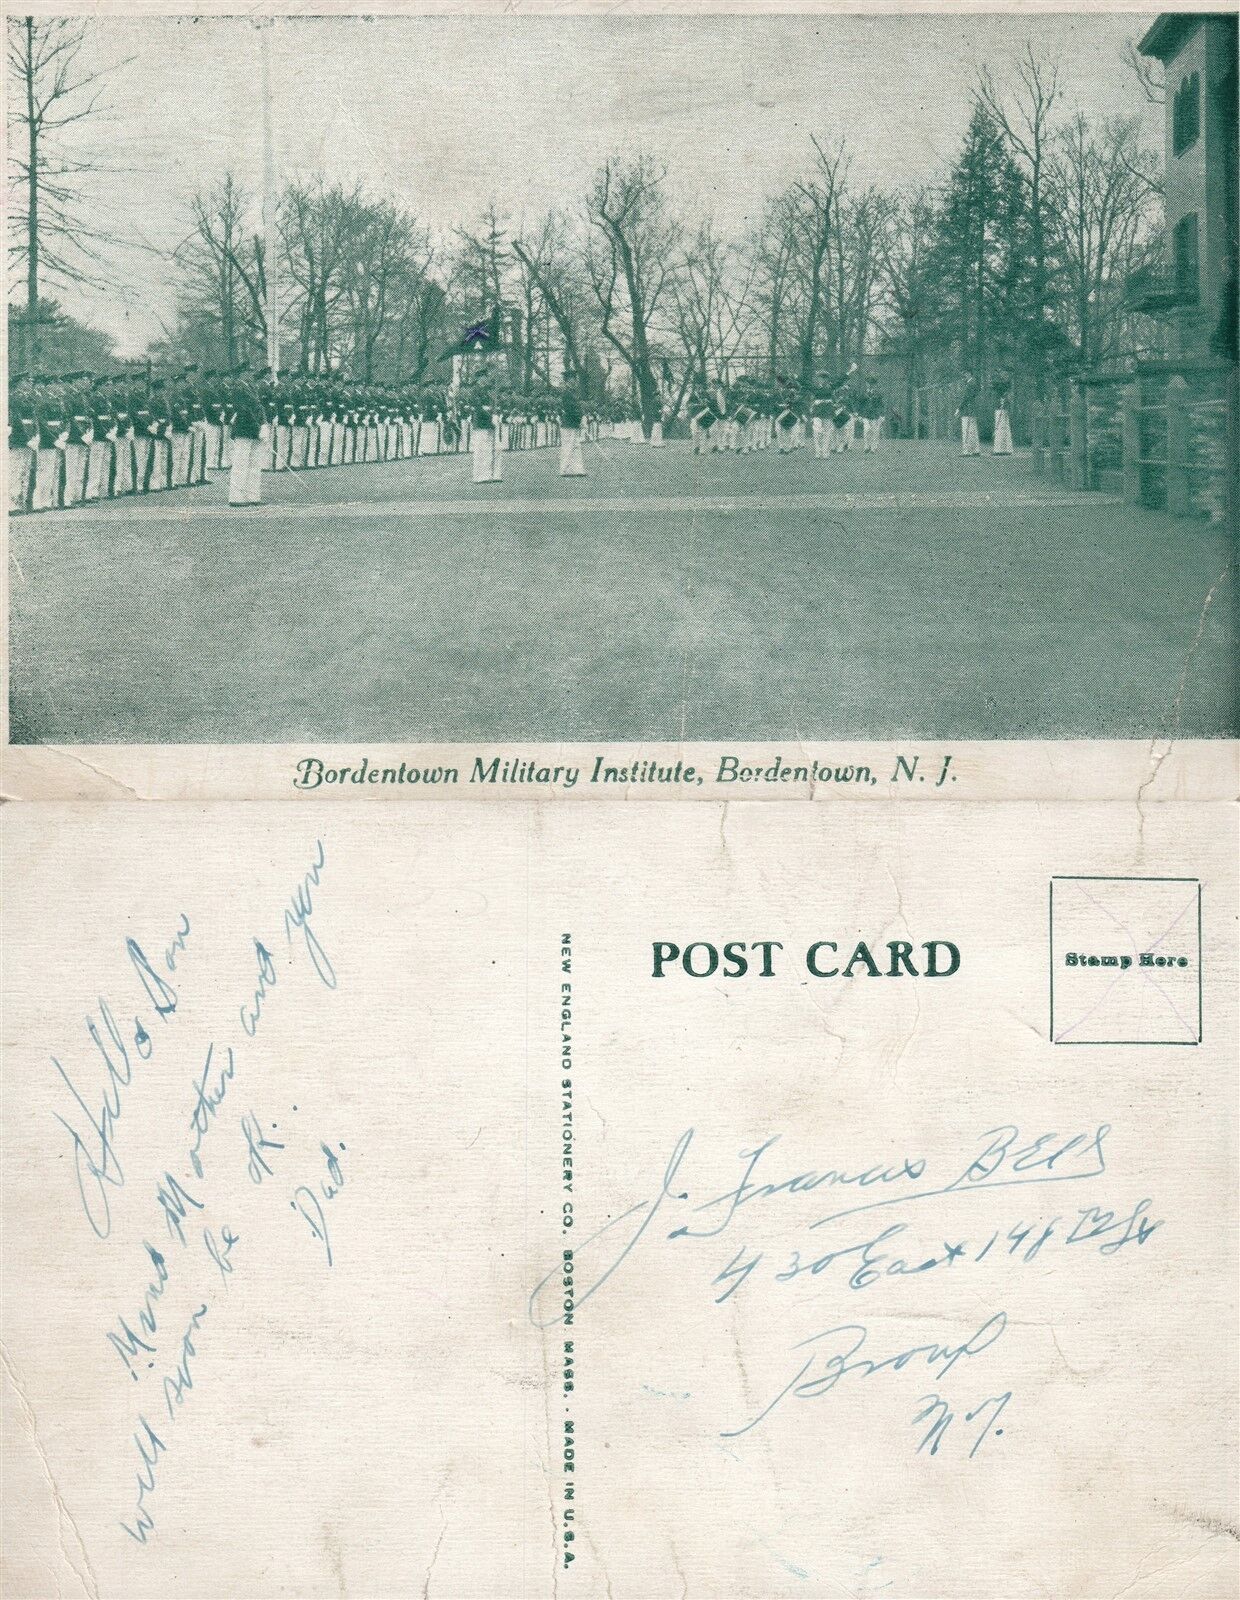 Bordentown Military Institute, Bordentown, N. J.
Hello Son
Mind Mother and you
will soon be ok.
Dad.
NEW ENGLAND STATIONERY CO. BOSTON MASS. - MADE IN U.S.A.
POST CARD
Stamp Here
J. Francis
430 East 148th St
Bronx
N.Y.